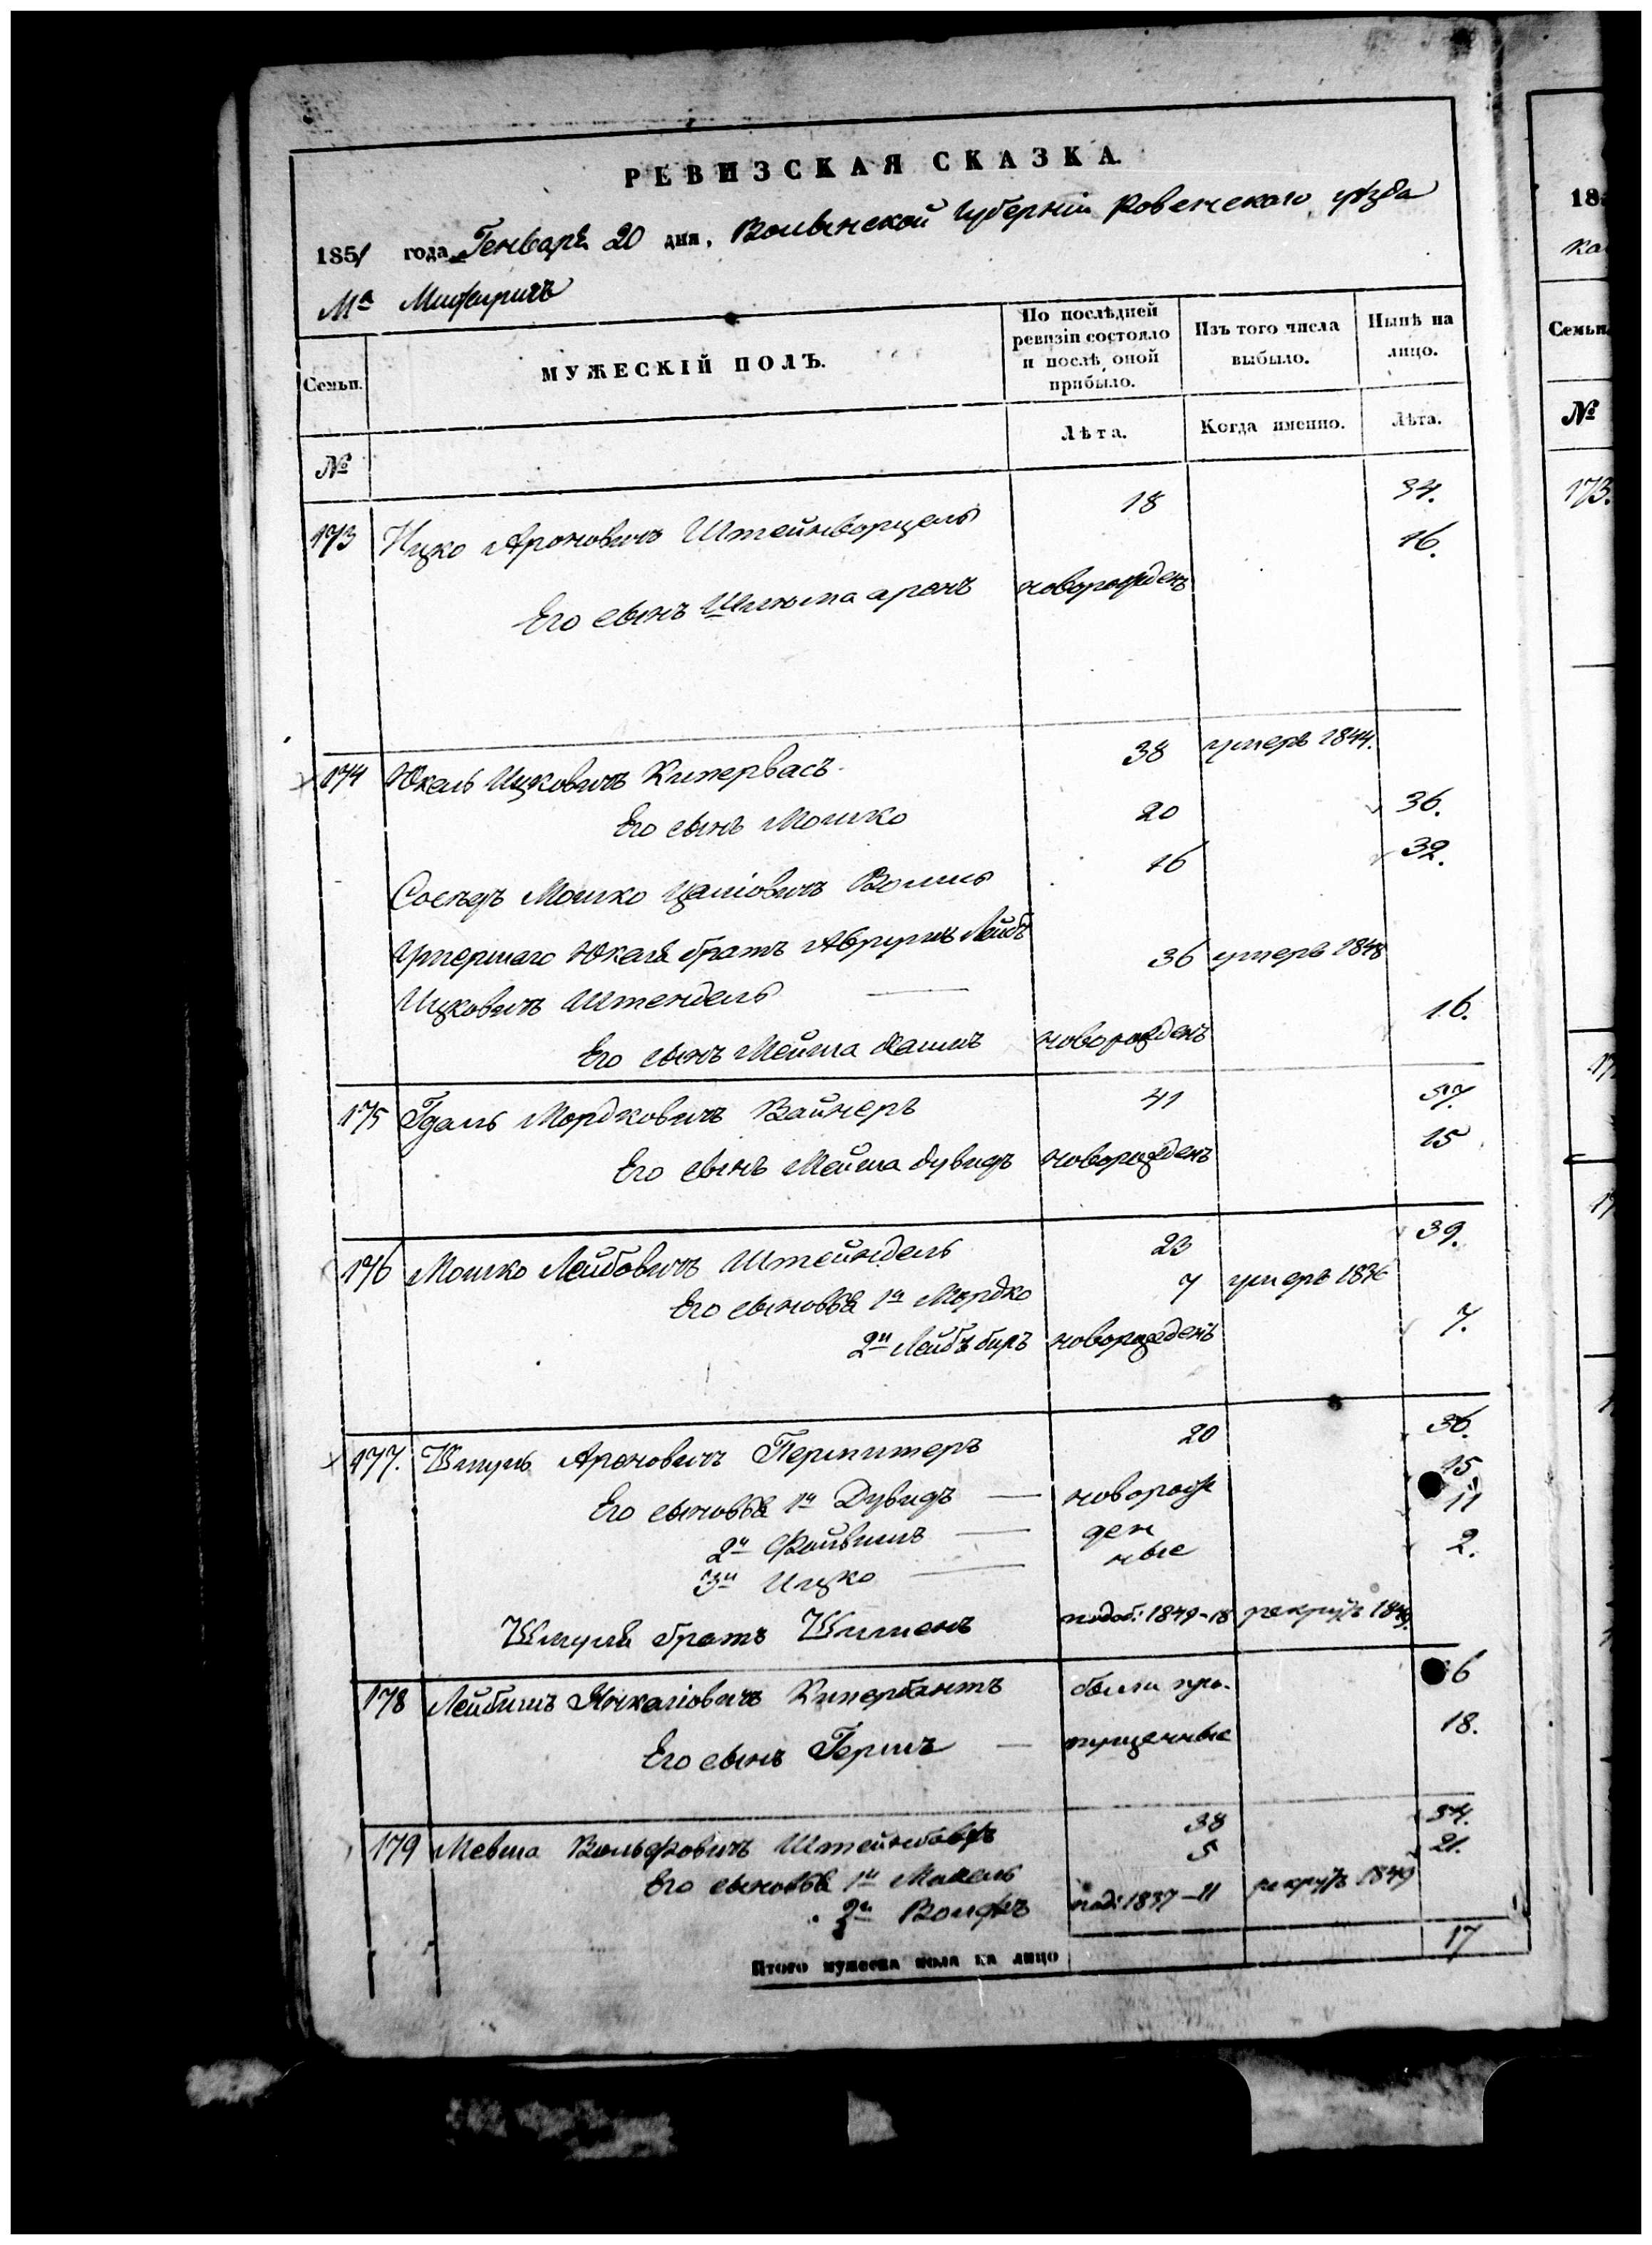 РЕВИЗСКАЯ СКАЗКА.
1851 года Генваря 20 дня, Волынской Губерніи Ровенского уѣзда
Мᵃ Межиричъ
Семьи.
МУЖЕСКІЙ ПОЛЪ.
По послѣдней ревизіи состояло и послѣ оной прибыло.
Изъ того числа выбыло.
Нынѣ на лицо.
№
Лѣта.
Когда именно.
Лѣта.
173 Ицко Ароновичъ Штейнворцель 18 34.
Его сынъ Шлюма аронъ новорожденъ 16.
174 Юкель Ицковичъ Кипервасъ 38 умеръ 1844.
Его сынъ Мошко 20 36.
Сосѣдъ Мошко 16 32.
Умершаго Юкеля братъ Аврумъ Лейбъ
Ицковичъ Штендель 36 умеръ 1848
Его сынъ новорожденъ 16.
175 Гдаль Мордковичъ Вайнеръ 41 57.
Его сынъ дувидъ новорожденъ 15
176 Мошко Лейбовичъ Штейндель 23 39.
Его сыновья 1й Мордко 7 умеръ 1836
2й Лейбъ беръ новорожденъ 7.
177. Шмуль Ароновичъ Перлмитеръ 20 36.
Его сыновья 1й Дувидъ новорож 15
2й Файвишъ ден 11
3й Ицко ные 2.
Шмуля братъ Шлиенъ 1849-18 рекрутъ 1849.
178 Лейбишъ Янкеліовичъ были про- 6
Его сынъ Гершъ пущенные 18.
179 Мевша Вольфовичъ 38 54.
Его сыновья 1й 5 21.
2й Волфъ 1837-11 рекрутъ 1849
Итого мужеска пола на лицо 17
18
Семьи
№
173.